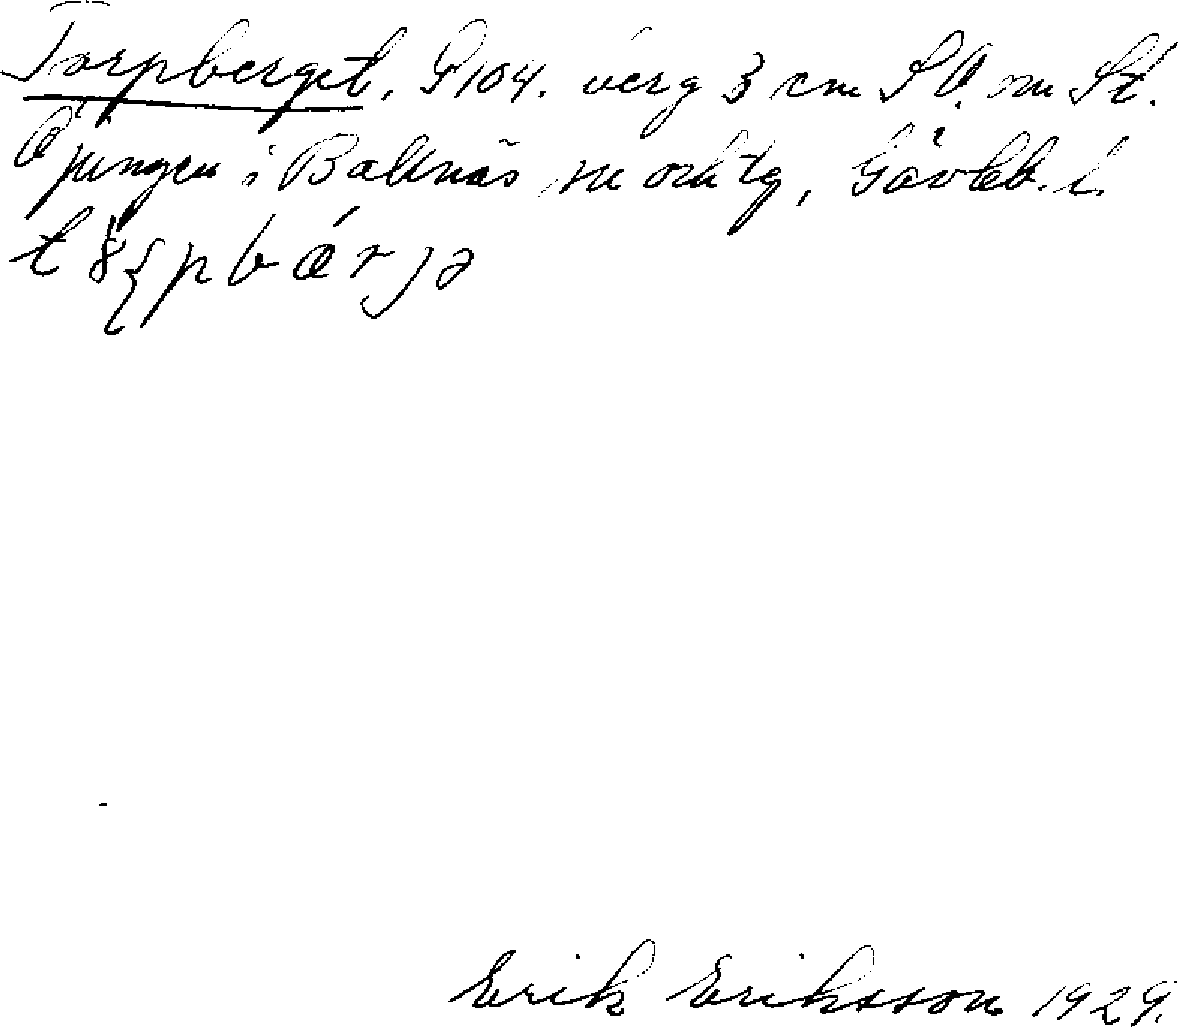 Torpberget. S104. berg 3 cm SV. om St.
Öjungen i Bollnäs sn och tg, Gävleb. l.
Erik Eriksson 1929.